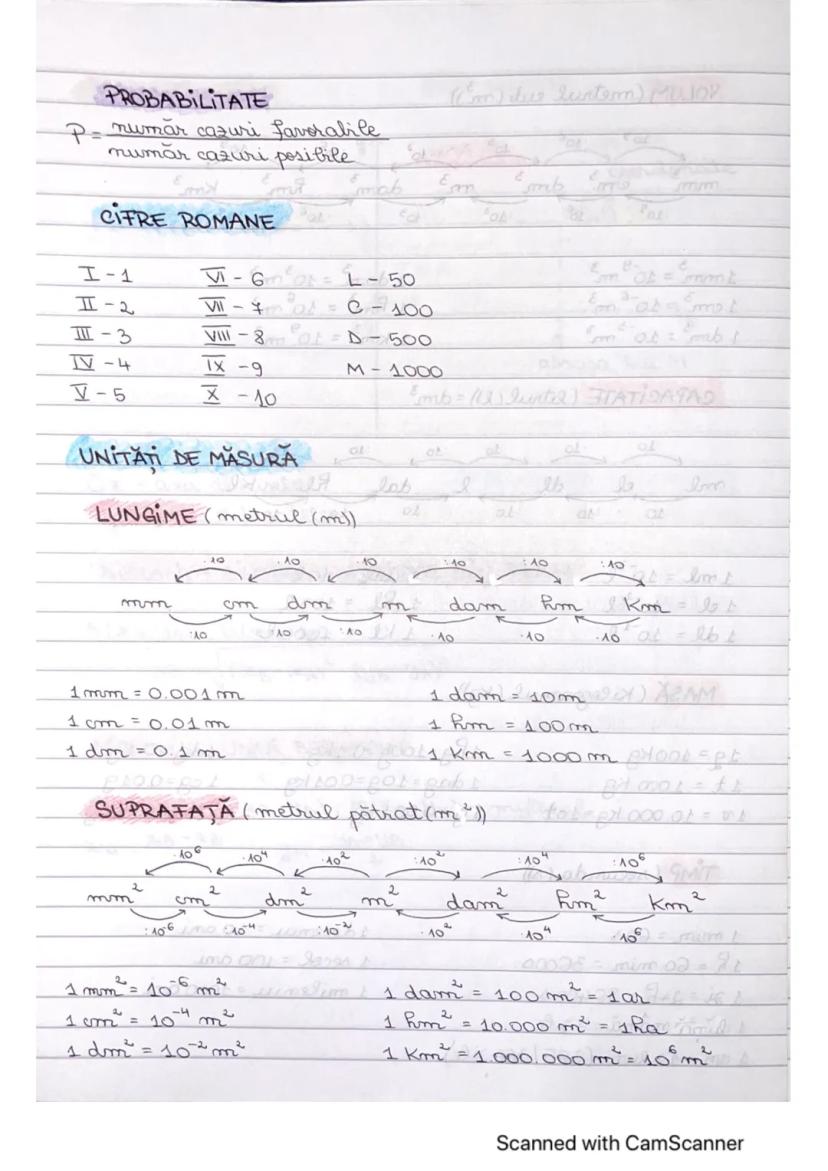 PROBABILITATE
P = număr cazuri favorabile
număr cazuri posibile
CIFRE ROMANE
I - 1 VI - 6 L - 50
II - 2 VII - 7 C - 100
III - 3 VIII - 8 D - 500
IV - 4 IX - 9 M - 1000
V - 5 X - 10
UNITĂȚI DE MĂSURĂ
LUNGIME (metrul (m))
·10 ·10 ·10 :10 :10 :10
mm cm dm m dam hm Km
:10 :10 :10 ·10 ·10 ·10
1 mm = 0.001 m 1 dam = 10 m
1 cm = 0.01 m 1 hm = 100 m
1 dm = 0.1 m 1 Km = 1000 m
SUPRAFAȚĂ (metrul pătrat (m²))
·10⁶ ·10⁴ ·10² :10² :10⁴ :10⁶
mm² cm² dm² m² dam² hm² Km²
:10⁶ :10⁻⁴ :10⁻² ·10² ·10⁴ ·10⁶
1 mm² = 10⁻⁶ m² 1 dam² = 100 m² = 1ar
1 cm² = 10⁻⁴ m² 1 hm² = 10.000 m² = 1ha
1 dm² = 10⁻² m² 1 Km² = 1.000.000 m² = 10⁶ m²
Scanned with CamScanner